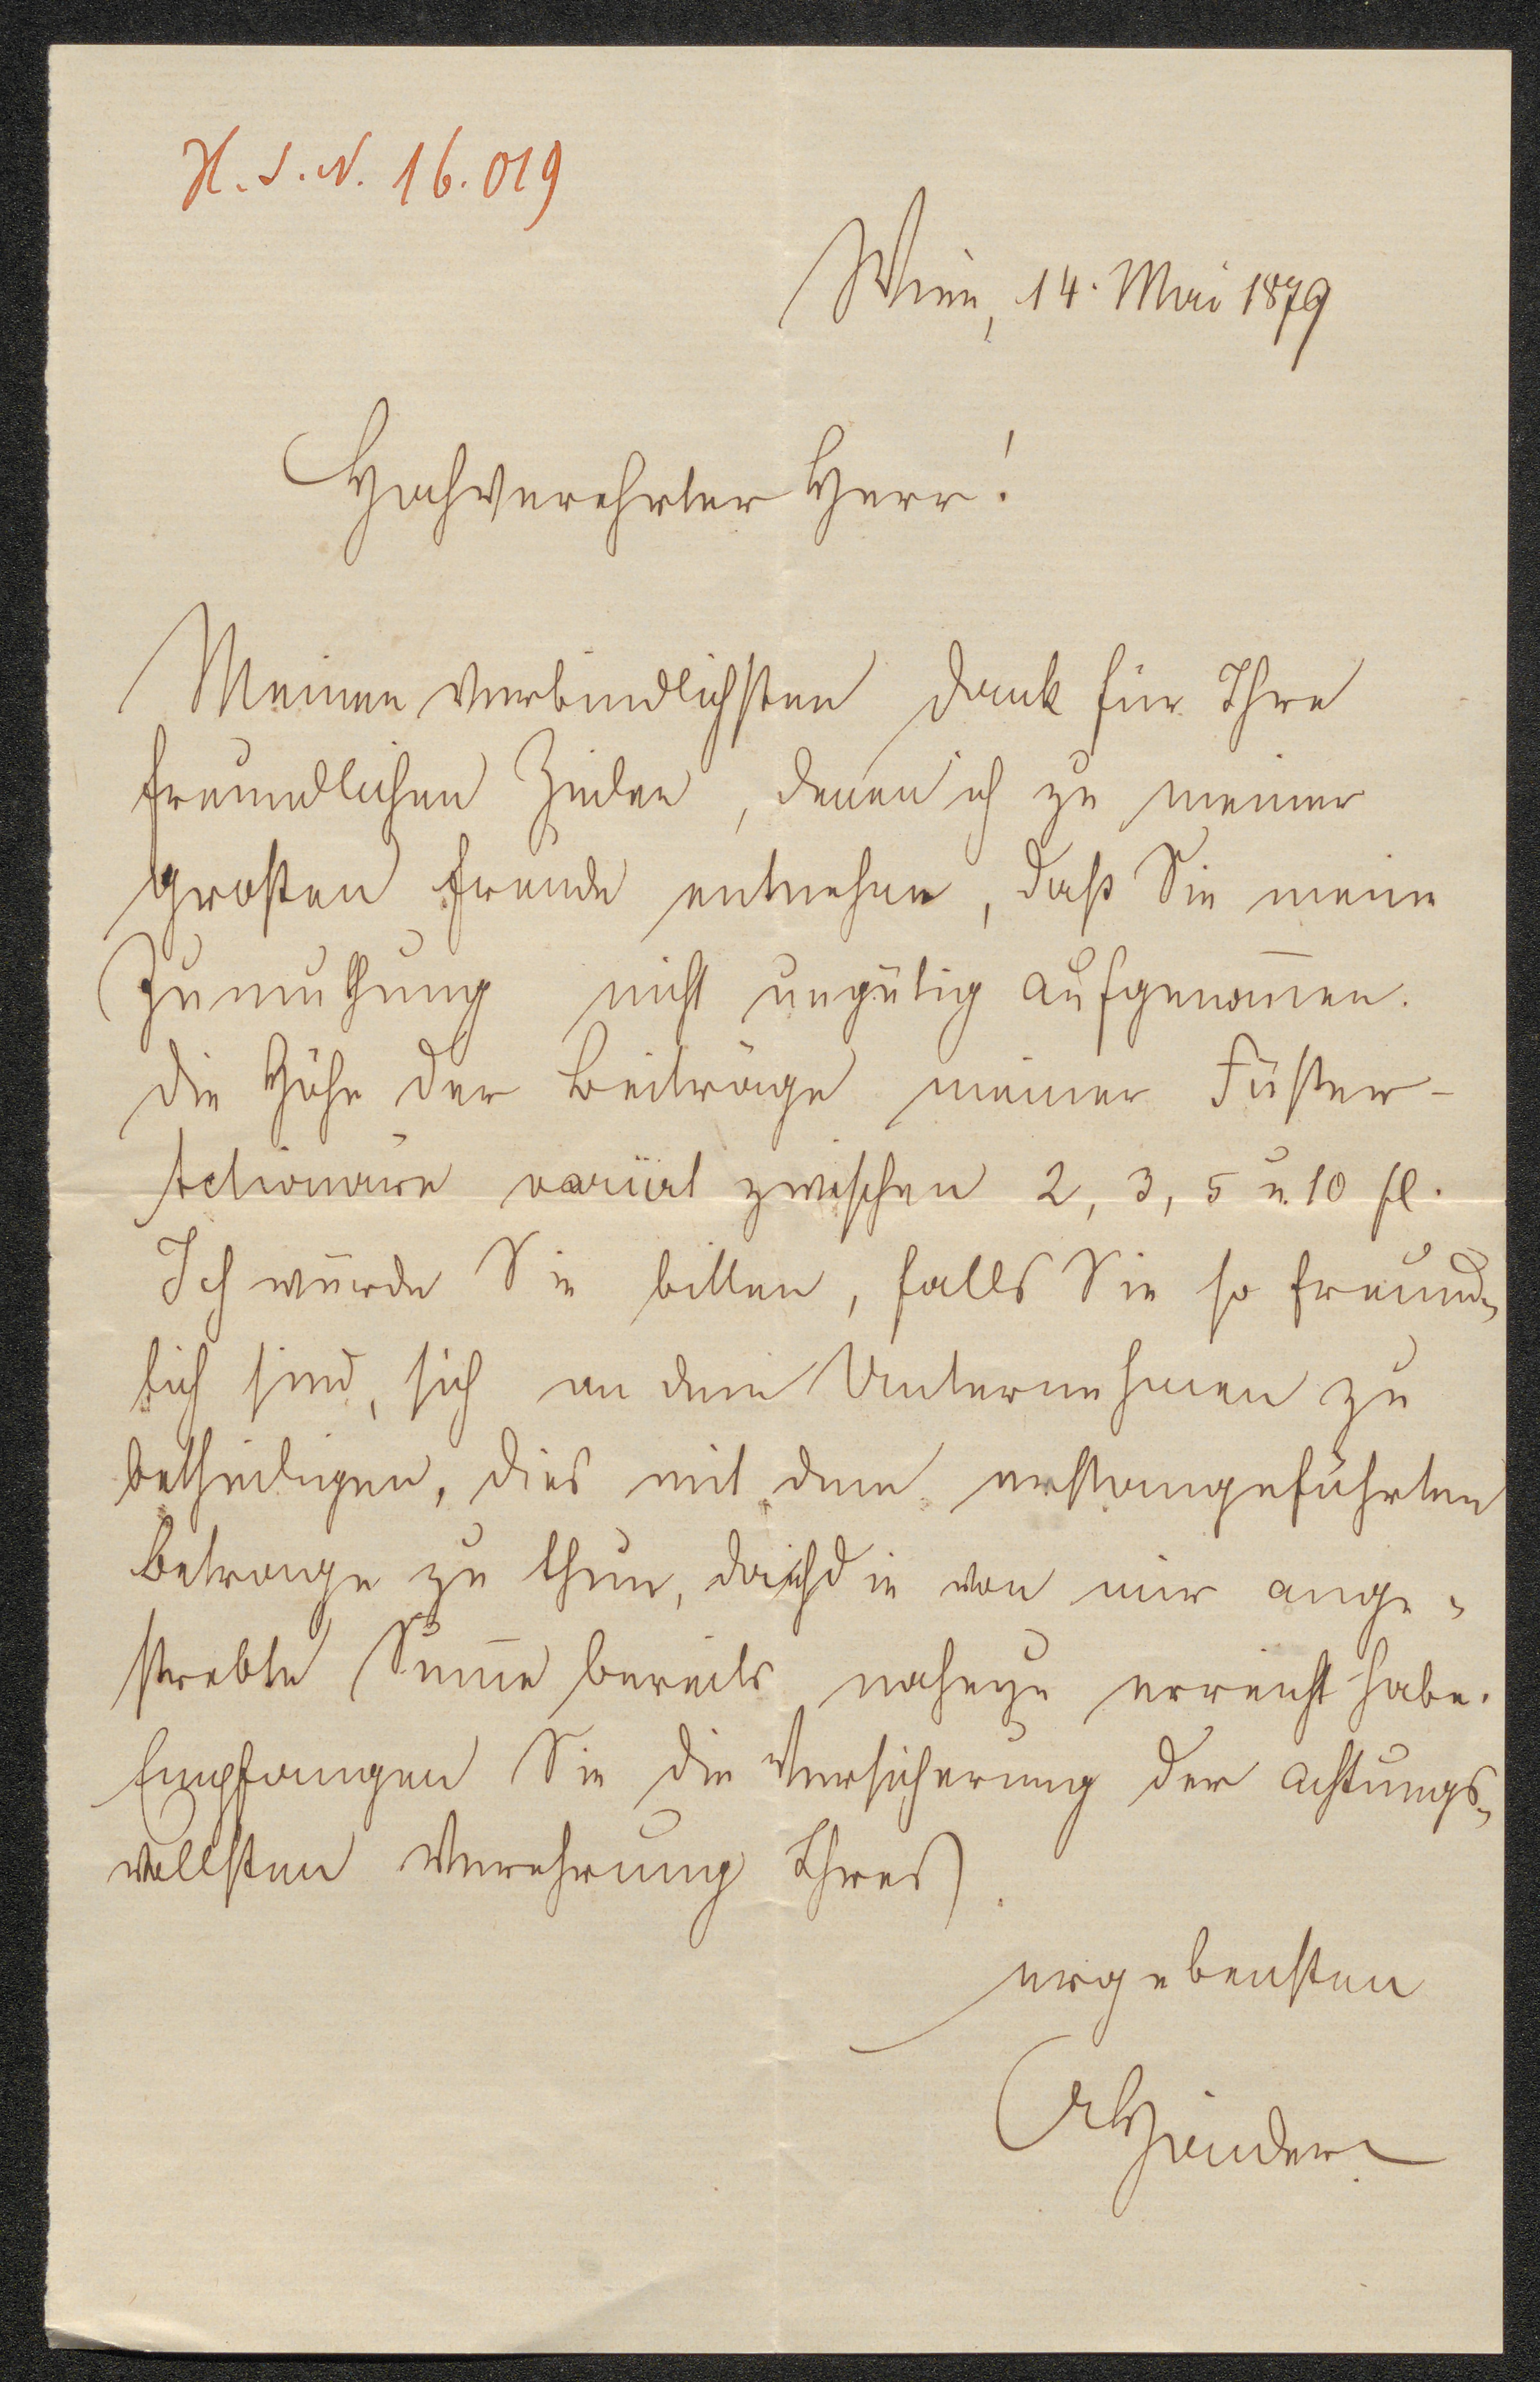 H.I.N. 16.019
Wien, 14. Mai 1879
Hochverehrter Herr!
Meinen verbindlichsten Dank für Ihre
freundlichen Zeilen, denen ich zu meiner
grosten Freude entnehme, daß Sie meine
Zumuthung nicht ungütig aufgenom̅en.
Die Höhe der Beiträge meiner Füster-
Actionäre variirt zwischen 2, 3, 5 u. 10 fl.
Ich würde Sie bitten, falls Sie so freund-
lich sind, sich an dem Unternehmen zu
betheiligen, dies mit dem erstangeführten
Betrage zu thun, da ich die von mir ange-
strebte Sum̅e bereits nahezu erreicht habe.
Empfangen Sie die Versicherung der achtungs-
vollsten Verehrung Ihres
ergebensten